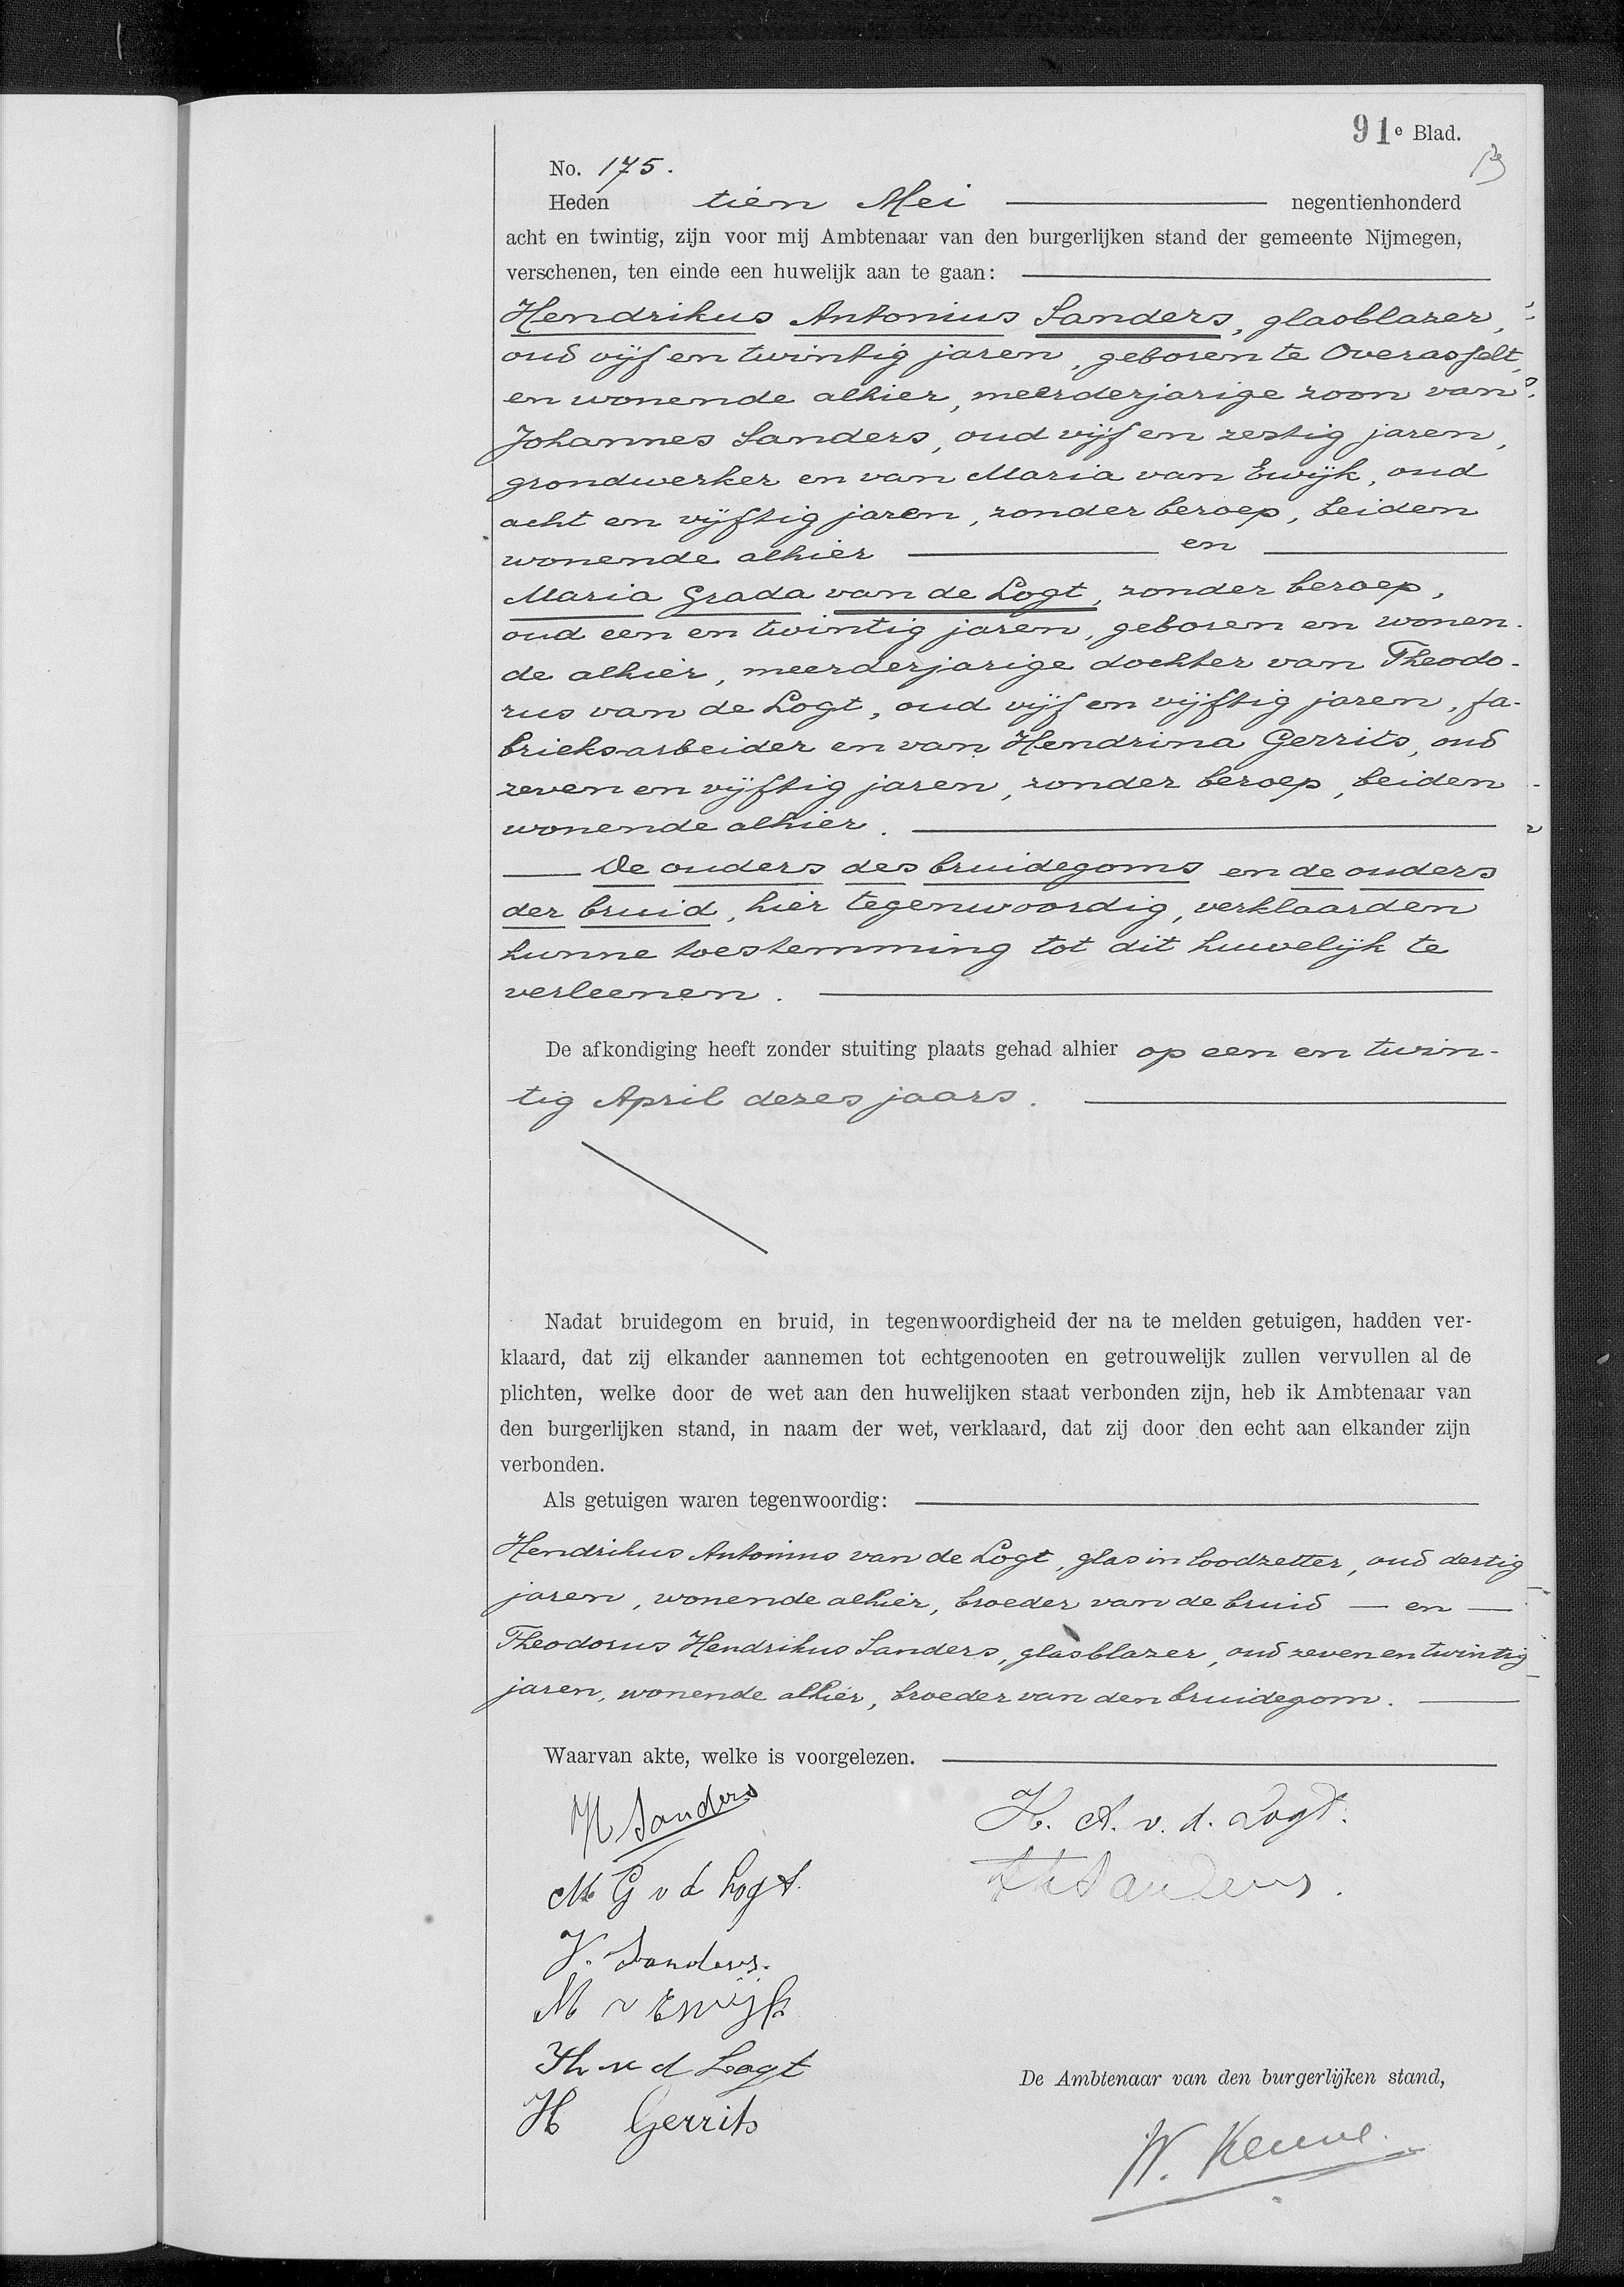 91e Blad.
No. 175.
Heden tien Mei negentienhonderd
acht en twintig, zijn voor mij Ambtenaar van den burgerlijken stand der gemeente Nijmegen,
verschenen, ten einde een huwelijk aan te gaan:
Hendrikus Antonius Sanders, glasblazer,
oud vijf en twintig jaren, geboren te Overasselt,
en wonende alhier, meerderjarige zoon van
Johannes Sanders, oud vijf en zestig jaren,
grondwerker en van Maria van Ewijk, oud
acht en vijftig jaren, zonder beroep, beiden
wonende alhier en
Maria Grada van de Logt, zonder beroep,
oud een en twintig jaren, geboren en wonen-
de alhier, meerderjarige dochter van Theodo-
rus van de Logt, oud vijf en vijftig jaren, fa-
brieksarbeider en van Hendrina Gerrits, oud
zeven en vijftig jaren, zonder beroep, beiden
wonende alhier.
De ouders des bruidegoms en de ouders
der bruid, hier tegenwoordig, verklaarden
hunne toestemming tot dit huwelijk te
verleenen.
De afkondiging heeft zonder stuiting plaats gehad alhier op een en twin-
tig April dezes jaars.
Nadat bruidegom en bruid, in tegenwoordigheid der na te melden getuigen, hadden ver-
klaard, dat zij elkander aannemen tot echtgenooten en getrouwelijk zullen vervullen al de
plichten, welke door de wet aan den huwelijken staat verbonden zijn, heb ik Ambtenaar van
den burgerlijken stand, in naam der wet, verklaard, dat zij door den echt aan elkander zijn
verbonden.
Als getuigen waren tegenwoordig:
Hendrikus Antonius van de Logt, glas in loodzetter, oud dertig
jaren, wonende alhier, broeder van de bruid — en —
Theodorus Hendrikus Sanders, glasblazer, oud zeven en twintig
jaren, wonende alhier, broeder van den bruidegom.
Waarvan akte, welke is voorgelezen.
H Sanders
H. A. v. d. Logt.
M G v d Logt.
Th Sanders.
J. Sanders.
M v Ewijk
Th v d Logt
De Ambtenaar van den burgerlijken stand,
H Gerrits